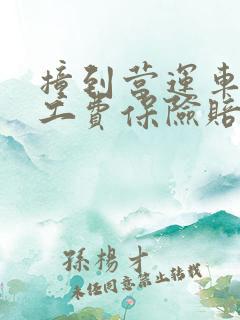 撞到营運車
工費保險賠
孫楊才
未经同意禁止转载